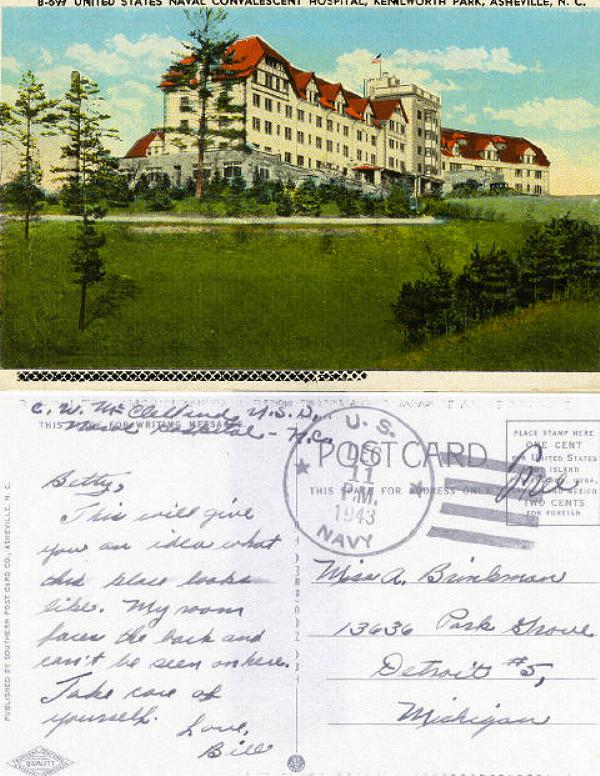 B-699 UNITED STATES NAVAL CONVALESCENT HOSPITAL, KENILWORTH PARK, ASHEVILLE, N. C.
C. W. McClelland, U.S.N.
Naval Hospital - N.C.
THIS FOR WRITING MESSAGES
POSTCARD
THIS FOR ADDRESS ONLY
U. S.
DEC
11
P.M.
1943
NAVY
PLACE STAMP HERE
ONE CENT
FOR UNITED STATES
ISLAND
CUBA,
AND MEXICO
TWO CENTS
FOR FOREIGN
Free
Betty,
This will give
you an idea what
this place looks
like. My room
faces the back and
can't be seen on here.
Take care of
yourself.
Love,
Bill
Miss A. Brinkman
13636 Park Grove
Detroit #5,
Michigan
PUBLISHED BY SOUTHERN POST CARD CO., ASHEVILLE, N. C.
QUALITY